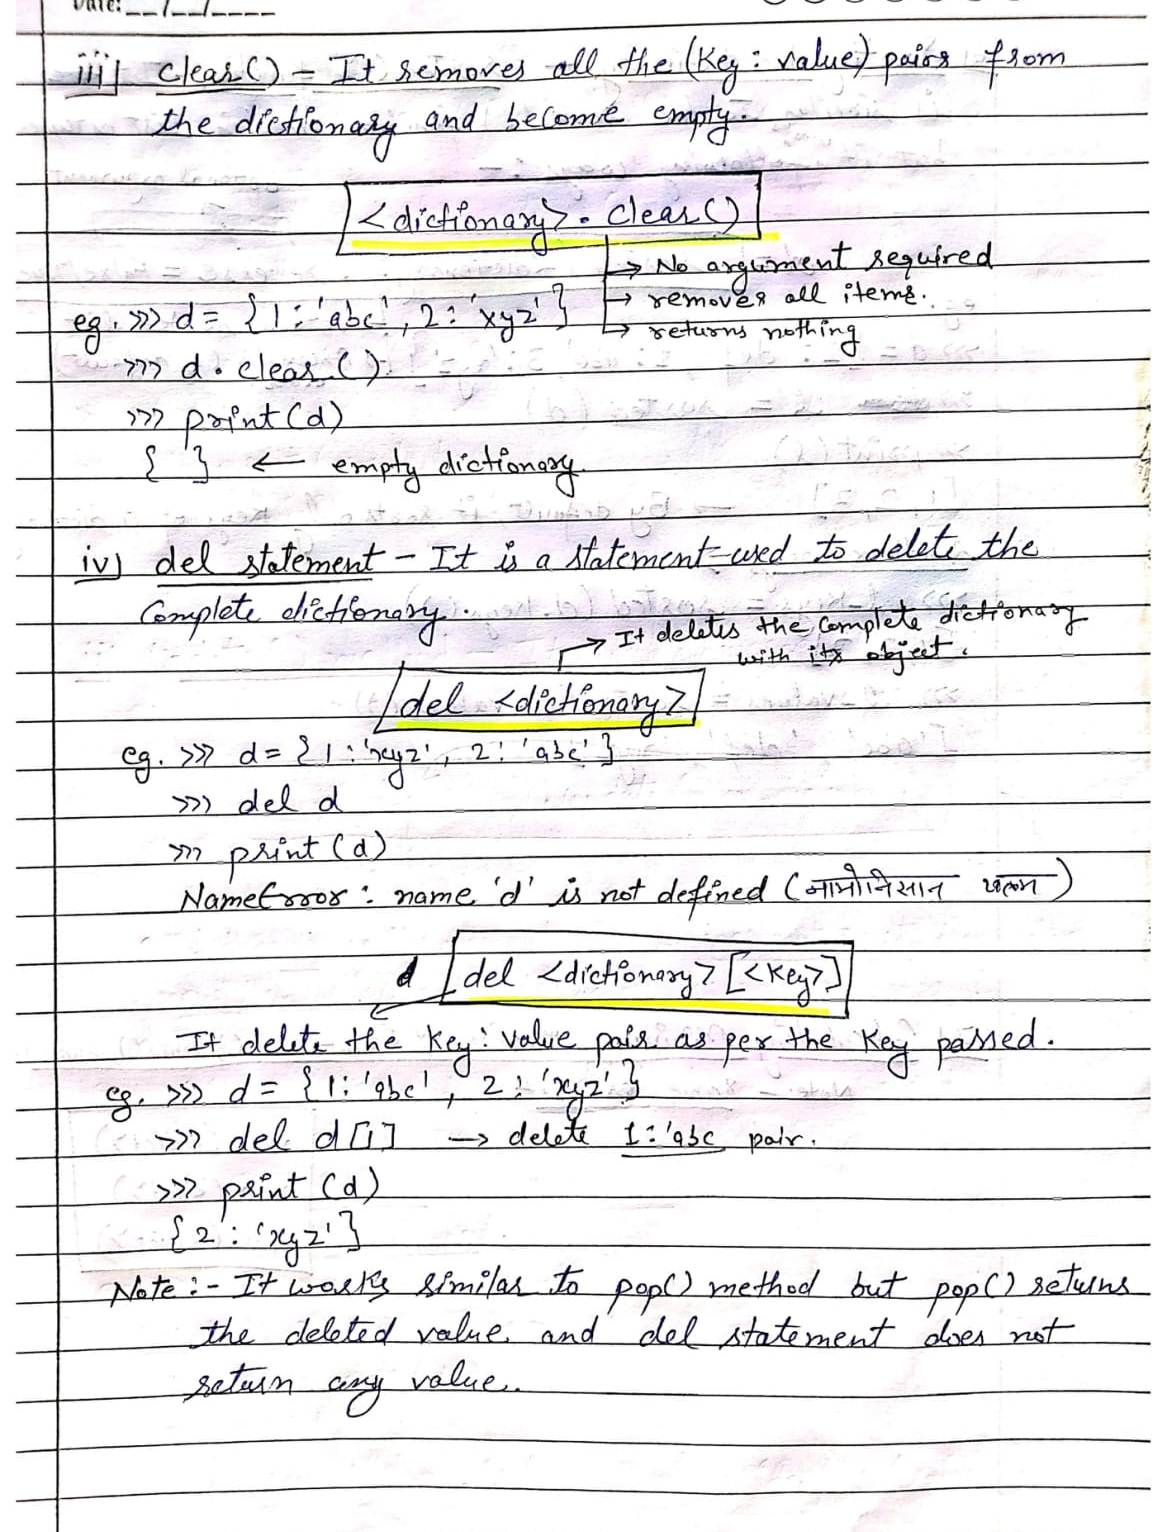 Date: __/__/____
iii) clear() – It removes all the (Key : value) pairs from
the dictionary and become empty.
<dictionary>. clear()
→ No argument required
→ removes all items.
→ returns nothing
eg. >>> d = {1: 'abc', 2: 'xyz'}
>>> d. clear ()
>>> print (d)
{ } ← empty dictionary.
iv) del statement – It is a statement used to delete the
Complete dictionary.
→ It deletes the Complete dictionary
with its object.
del <dictionary>
eg. >>> d = {1 : 'xyz', 2 : 'abc'}
>>> del d
>>> print (d)
NameError : name 'd' is not defined (नामोनिसान खत्म)
d del <dictionary> [<Key>]
It delete the Key : value pair as per the Key passed.
eg. >>> d = {1: 'abc', 2 : 'xyz'}
>>> del d[1] → delete 1:'abc pair.
>>> print (d)
{2 : 'xyz'}
Note :- It works similar to pop() method but pop() returns
the deleted value and del statement does not
return any value.